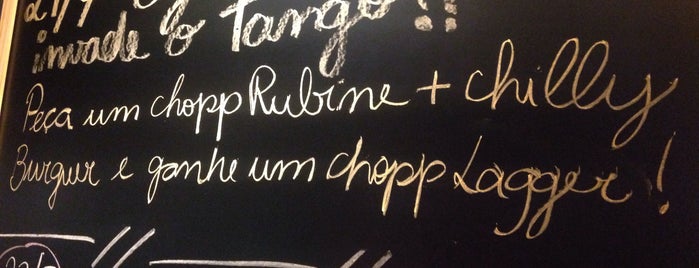 invade o Tango!!
Peça um chopp Rubine + chilly
Burguer e ganhe um chopp Lagger!